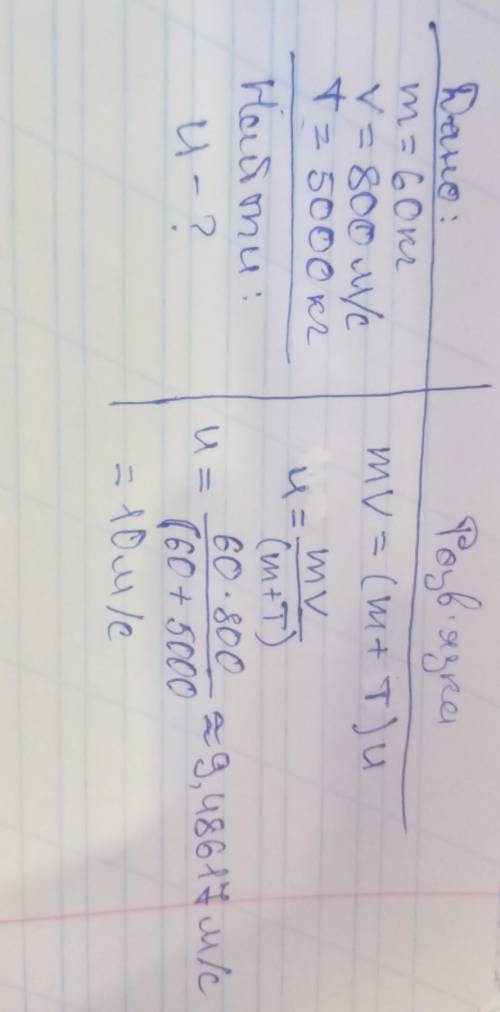 Дано:
m = 60 кг
v = 800 м/с
T = 5000 кг
Найти:
u - ?
Розв'язка
mv = (m + T)u
u = mv / (m+T)
u = 60 · 800 / (60 + 5000 ≈ 9,48617 м/с
= 10 м/с